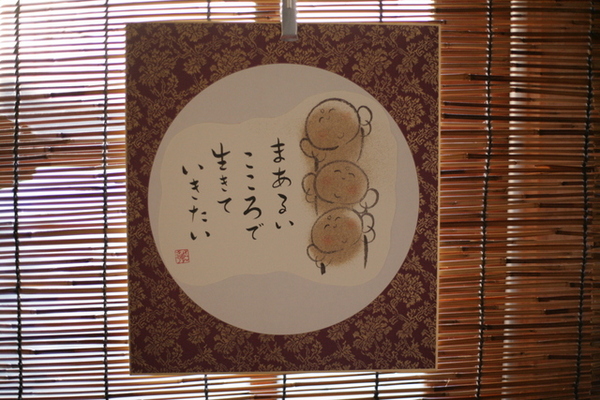 まあるい
こころで
生きて
いきたい